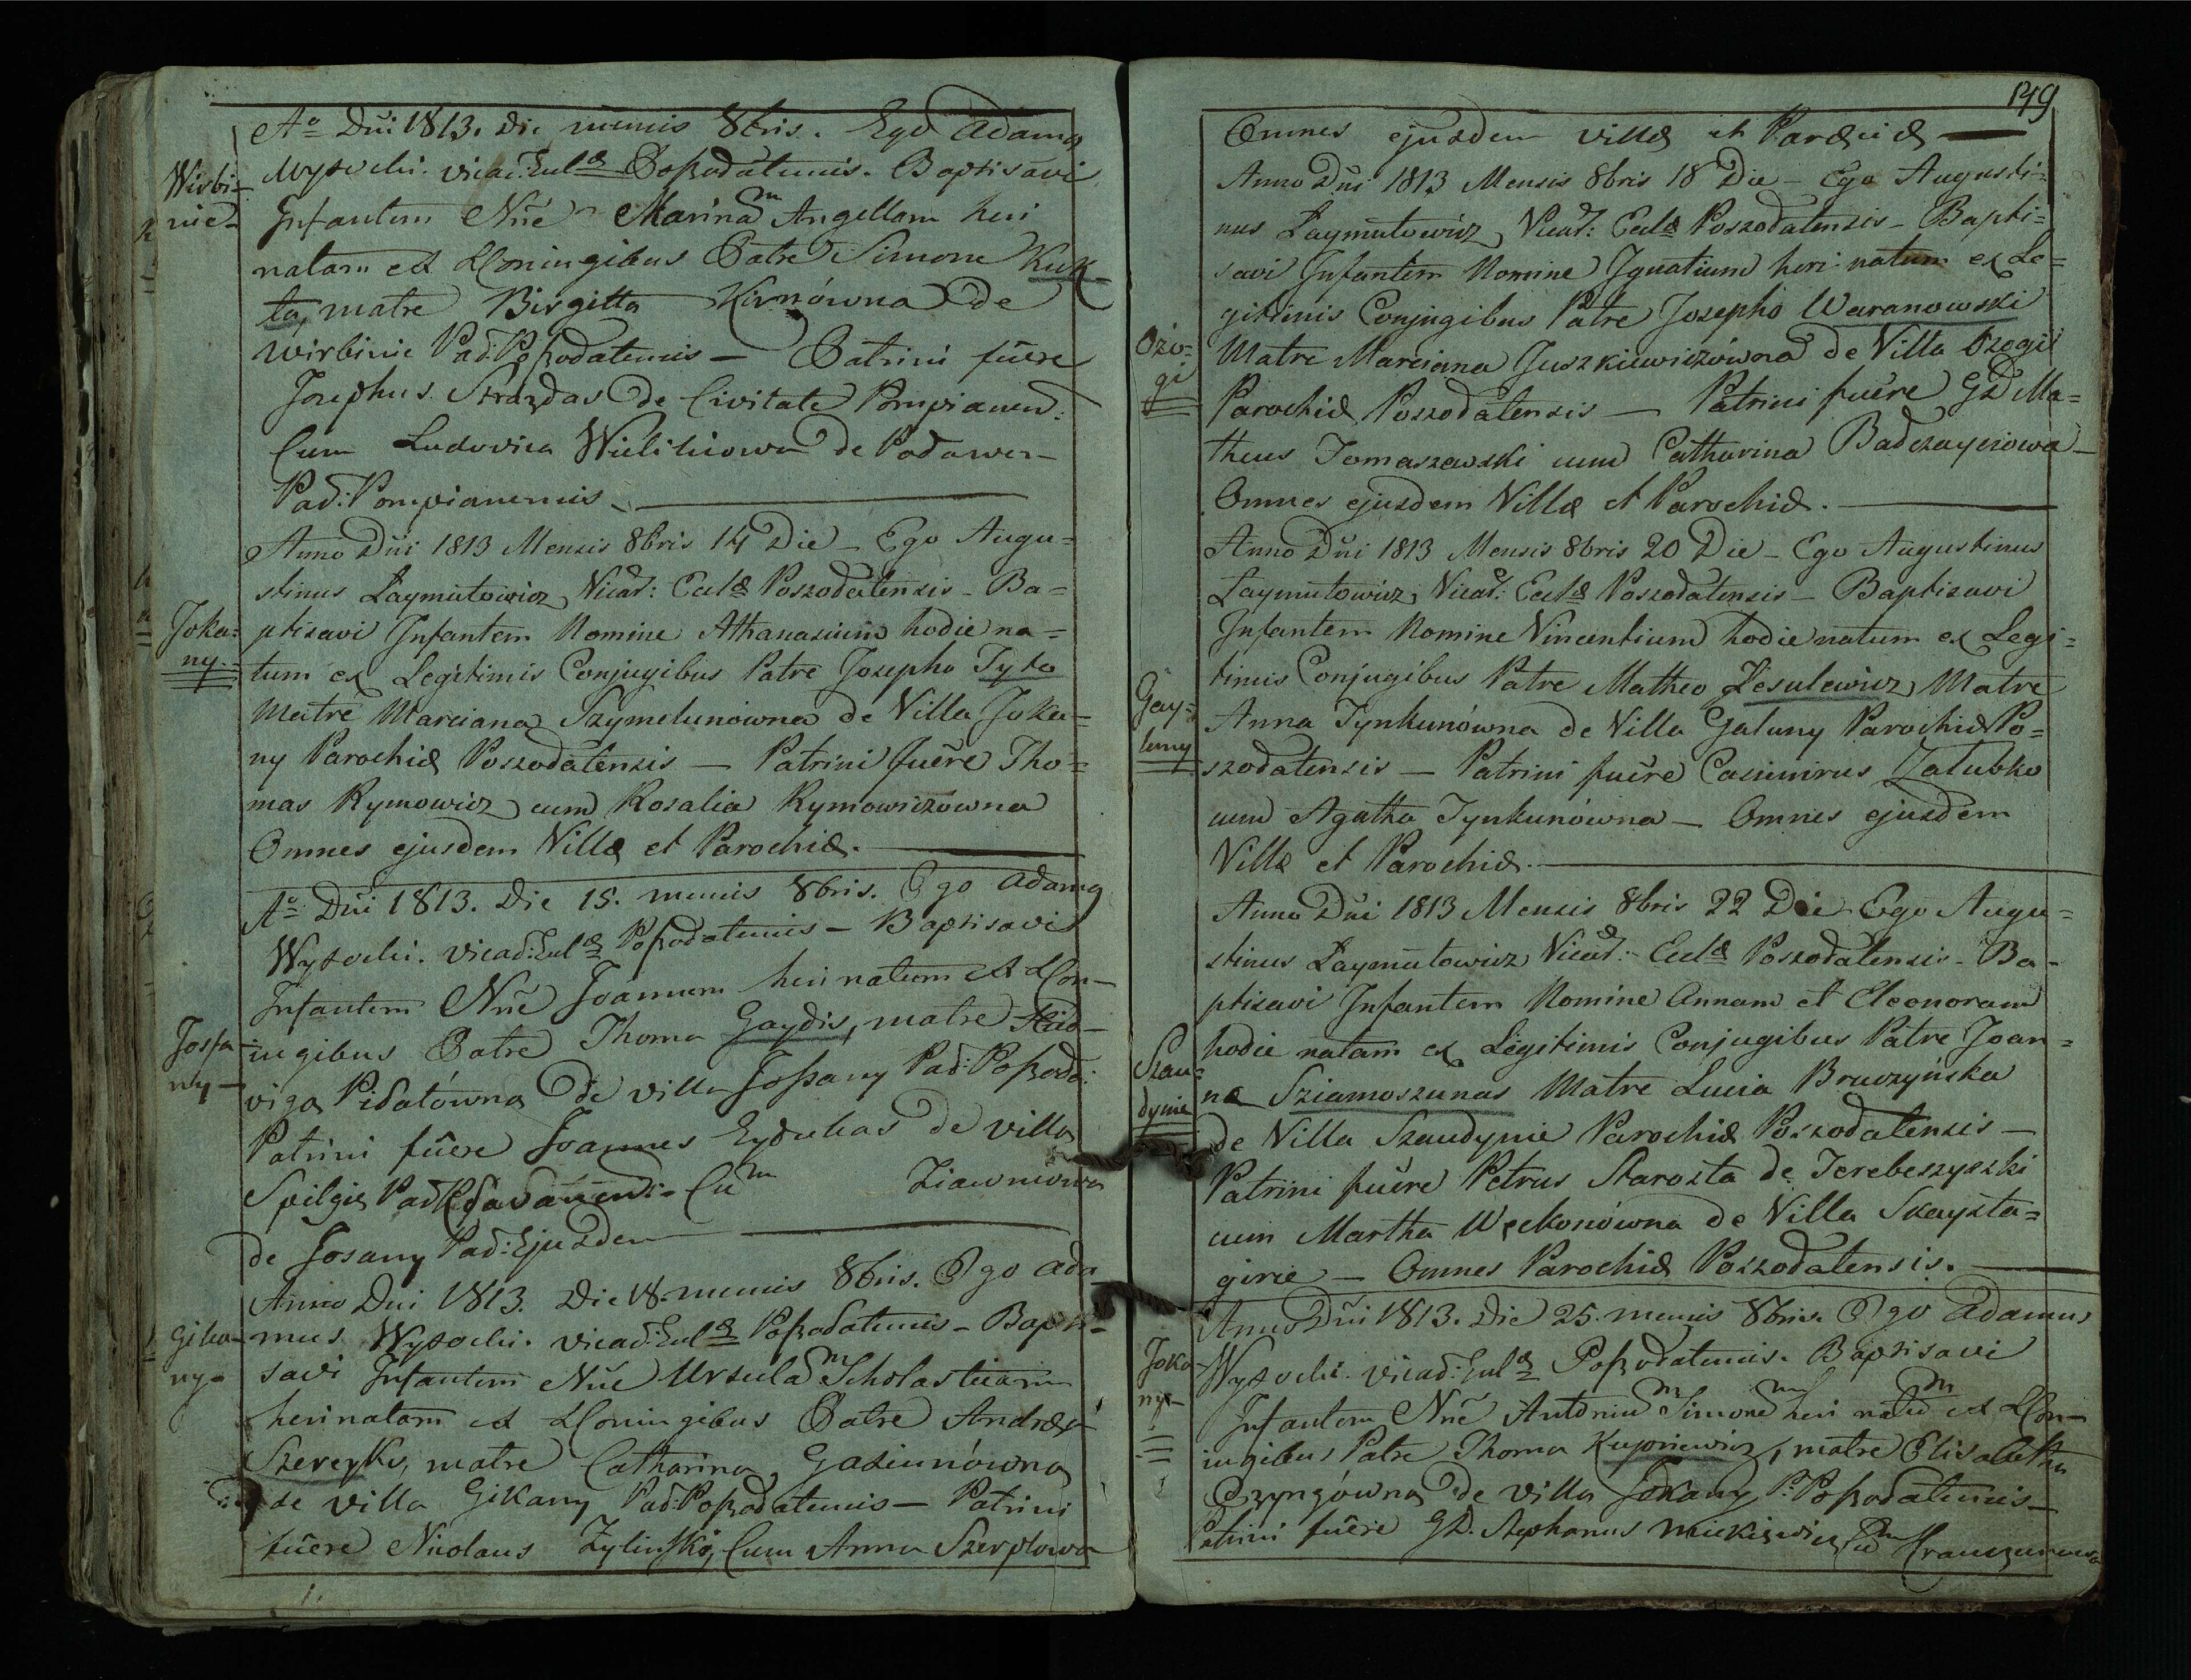 Ao Dni 1813. Die mensis 8bris. Ego Adamus
Wysocki. Vicad: Eul: Poszodatensis. Baptisavi
Wirbi=
nie=
Infantem Nne Marinam Angellam heri
natam ex LConiugibus Patre Simone Kuk
ta, matre Birgitta Kirnówna de
Wirbinie Pad: Poszodatensis — Patrini fuere
Josephus Strazdas de Civitate Pompianen:
Cum Ludovica Wieliciowa de
Pad: Pompianensis
Anno Dni 1813 Mensis 8bris 14 Die — Ego Augu=
stinus Laymutowicz, Vicad: Eccl Poszodatensis — Ba=
Joka=
ny
ptisavi Infantem Nomine Athanasium hodie na=
tum ex Legitimis Conjugibus Patre Josepho Tyto
Matre Marciana Szymelunowna de Villa Joka=
ny Parochiæ Poszodatensis — Patrini fuere Tho=
mas Rymowicz cum Rosalia Rymowiczowna
Omnes ejusdem Villæ et Parochiæ.
Ao Dni 1813. Die 15. mensis 8bris. Ego Adamus
Wysocki. Vicad: Eul Poszodatensis — Baptisavi
Infantem Nne Joannem heri natum ex LCon—
Josza—
ny—
iugibus Patre Thoma Gaydis, matre Hed—
viga Pidatówna de villa Joszany Pad: Poszoda:
Patrini fuere Joannes Eydukas de villa
Spilgie Pad Cum Ziawniowa
de Josany Pad: Ejusdem
Anno Dni 1813. Die 18. mensis 8bris. Ego Ada
Gika—
ny—
mus Wysocki. Vicad: Eul Poszodatensis — Bapti—
savi Infantem Nne Ursulam Scholasticam
heri natam ex LConiugibus Patre Andrea
Szereyko, matre Catharina Gasiunówna
de villa Gikany Pad: Poszodatensis — Patrini
fuere Nicolaus Zylinski, Cum Anna Szerplowa
149
Omnes ejusdem villæ et Paræciæ
Anno Dni 1813 Mensis 8bris 18 Die — Ego Augusti=
nus Laymutowicz, Vicad: Eccl Poszodatensis — Bapti=
savi Infantem Nomine Ignatium heri natum ex Le=
gitimis Conjugibus Patre Josepho Waranowski
Ozo=
gi
Matre Marciana Juszkiewiczówna de Villa Ozogi
Parochiæ Poszodatensis — Patrini fuere GD Ma=
theus Tomaszewski cum Catharina Badczayciowa
Omnes ejusdem Villæ et Parochiæ.
Anno Dni 1813 Mensis 8bris 20 Die — Ego Augustinus
Laymutowicz, Vicad: Eccl Poszodatensis — Baptisavi
Infantem Nomine Vincentium hodie natum ex Legi=
timis Conjugibus Patre Matheo Zesulewicz, Matre
Gay=
luny
Anna Tynkunówna de Villa Galuny Parochiæ Po=
szodatensis — Patrini fuere Casimirus Zatubko
cum Agatha Tynkunówna — Omnes ejusdem
Villæ et Parochiæ.
Anno Dni 1813 Mensis 8bris 22 Die Ego Augu=
stinus Laymutowicz Vicad: Eccl Poszodatensis — Ba=
ptisavi Infantem Nomine Annam et Eleonoram
hodie natam ex Legitimis Conjugibus Patre Joan=
Szau=
dynie
ne Sziamoszunas Matre Lucia Bruczyńska
de Villa Szaudynie Parochiæ Poszodatensis —
Patrini fuere Petrus Starosta de Jerebeszyszki
cum Martha Węckonówna de Villa Skaysta=
girie — Omnes Parochiæ Poszodatensis.
Anno Dni 1813. Die 25. mensis 8bris. Ego Adamus
Joka
ny—
Wysocki. Vicad: Eul Poszodatensis. Baptisavi
Infantem Nne Antonium Simonem heri natum ex LCon—
iugibus Patre Thoma Kupniewicz, matre Elisabetha
Czyngówna de villa Jokany P: Poszodatensis —
Patrini fuere GD. Stephanus Mickiewicz, Cum